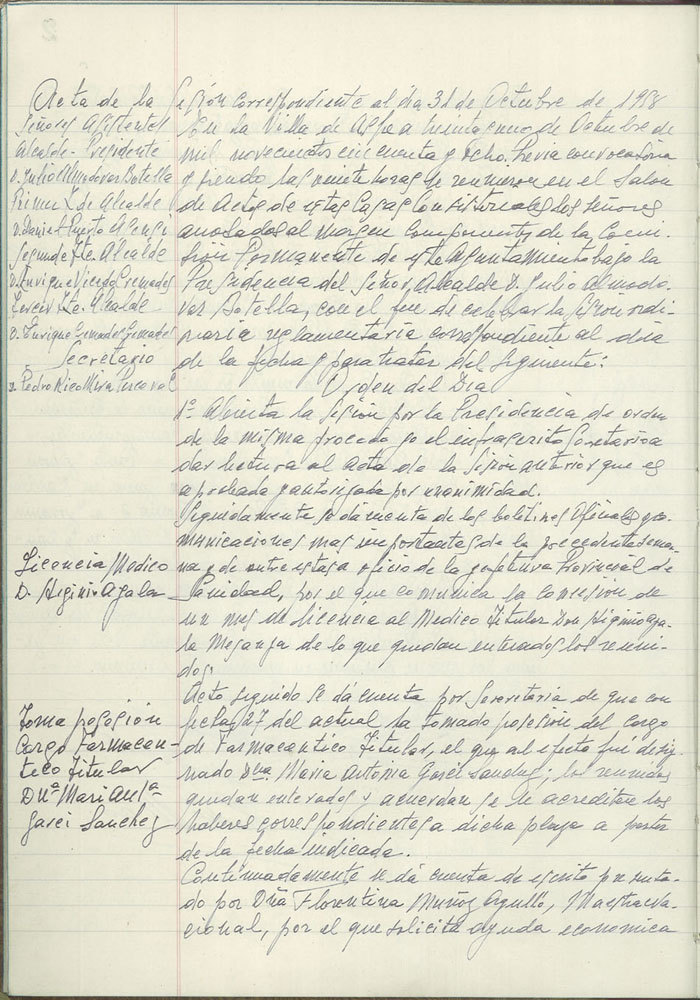 Acta de la Sesión correspondiente al dia 31 de Octubre de 1958
Señores Asistentes
Alcalde-Presidente
D. Julio Almodovar Botella
Primer T. de Alcalde
D. Daniel Puerto Asensi
Segundo Tte. Alcalde
D. Enrique Vicedo Gremades
Tercer Tte. Alcalde
D. Enrique Gremades Gremades
Secretario
D. Pedro Rico Mira Perceval
En la Villa de Aspe a treinta y uno de Octubre de
mil novecientos cincuenta y ocho. Previa convocatoria
y siendo las veinte horas se reunieron en el Salon
de Actos de estas Casas Consistoriales los señores
anotados al margen componentes de la Comi-
sión Permanente de este Ayuntamiento bajo la
Presidencia del Señor Alcalde D. Julio Almodo-
var Botella, con el fin de celebrar la sesión ordi-
naria reglamentaria correspondiente al dia
de la fecha y para tratar del siguiente:
Orden del Dia
1º Abierta la sesión por la Presidencia de orden
de la misma procedo yo el infrascrito Secretario a
dar lectura al Acta de la Sesión anterior que es
aprobada y autorizada por unanimidad.
Seguidamente se da cuenta de los boletines Oficiales y co-
municaciones mas importantes de la precedente sema-
na y de entre estas a oficio de la Jefatura Provincial de
Sanidad, por el que comunica la concesión de
un mes de licencia al Medico Titular Don Higinio Aya-
la Meganza de lo que quedan enterados los reuni-
dos.
Licencia Medico
D. Higinio Ayala
Acto seguido se dá cuenta por Secretaria de que con
fecha 27 del actual ha tomado posesión del cargo
de Farmacantico Titular, el que al efecto fué desig-
nado Dña. Maria Antonia Garci Sanchez; los reunidos
quedan enterados y acuerdan se le acrediten los
haberes correspondientes a dicha plaza a partir
de la fecha indicada.
Toma posesión
Cargo Farmacan-
tico Titular
Dñª Mari Antª
Garci Sanchez
Continuadamente se dá cuenta de escrito presenta-
do por Dña Florentina Muñoz Agulló, Maestra Na-
cional, por el que solicita ayuda economica